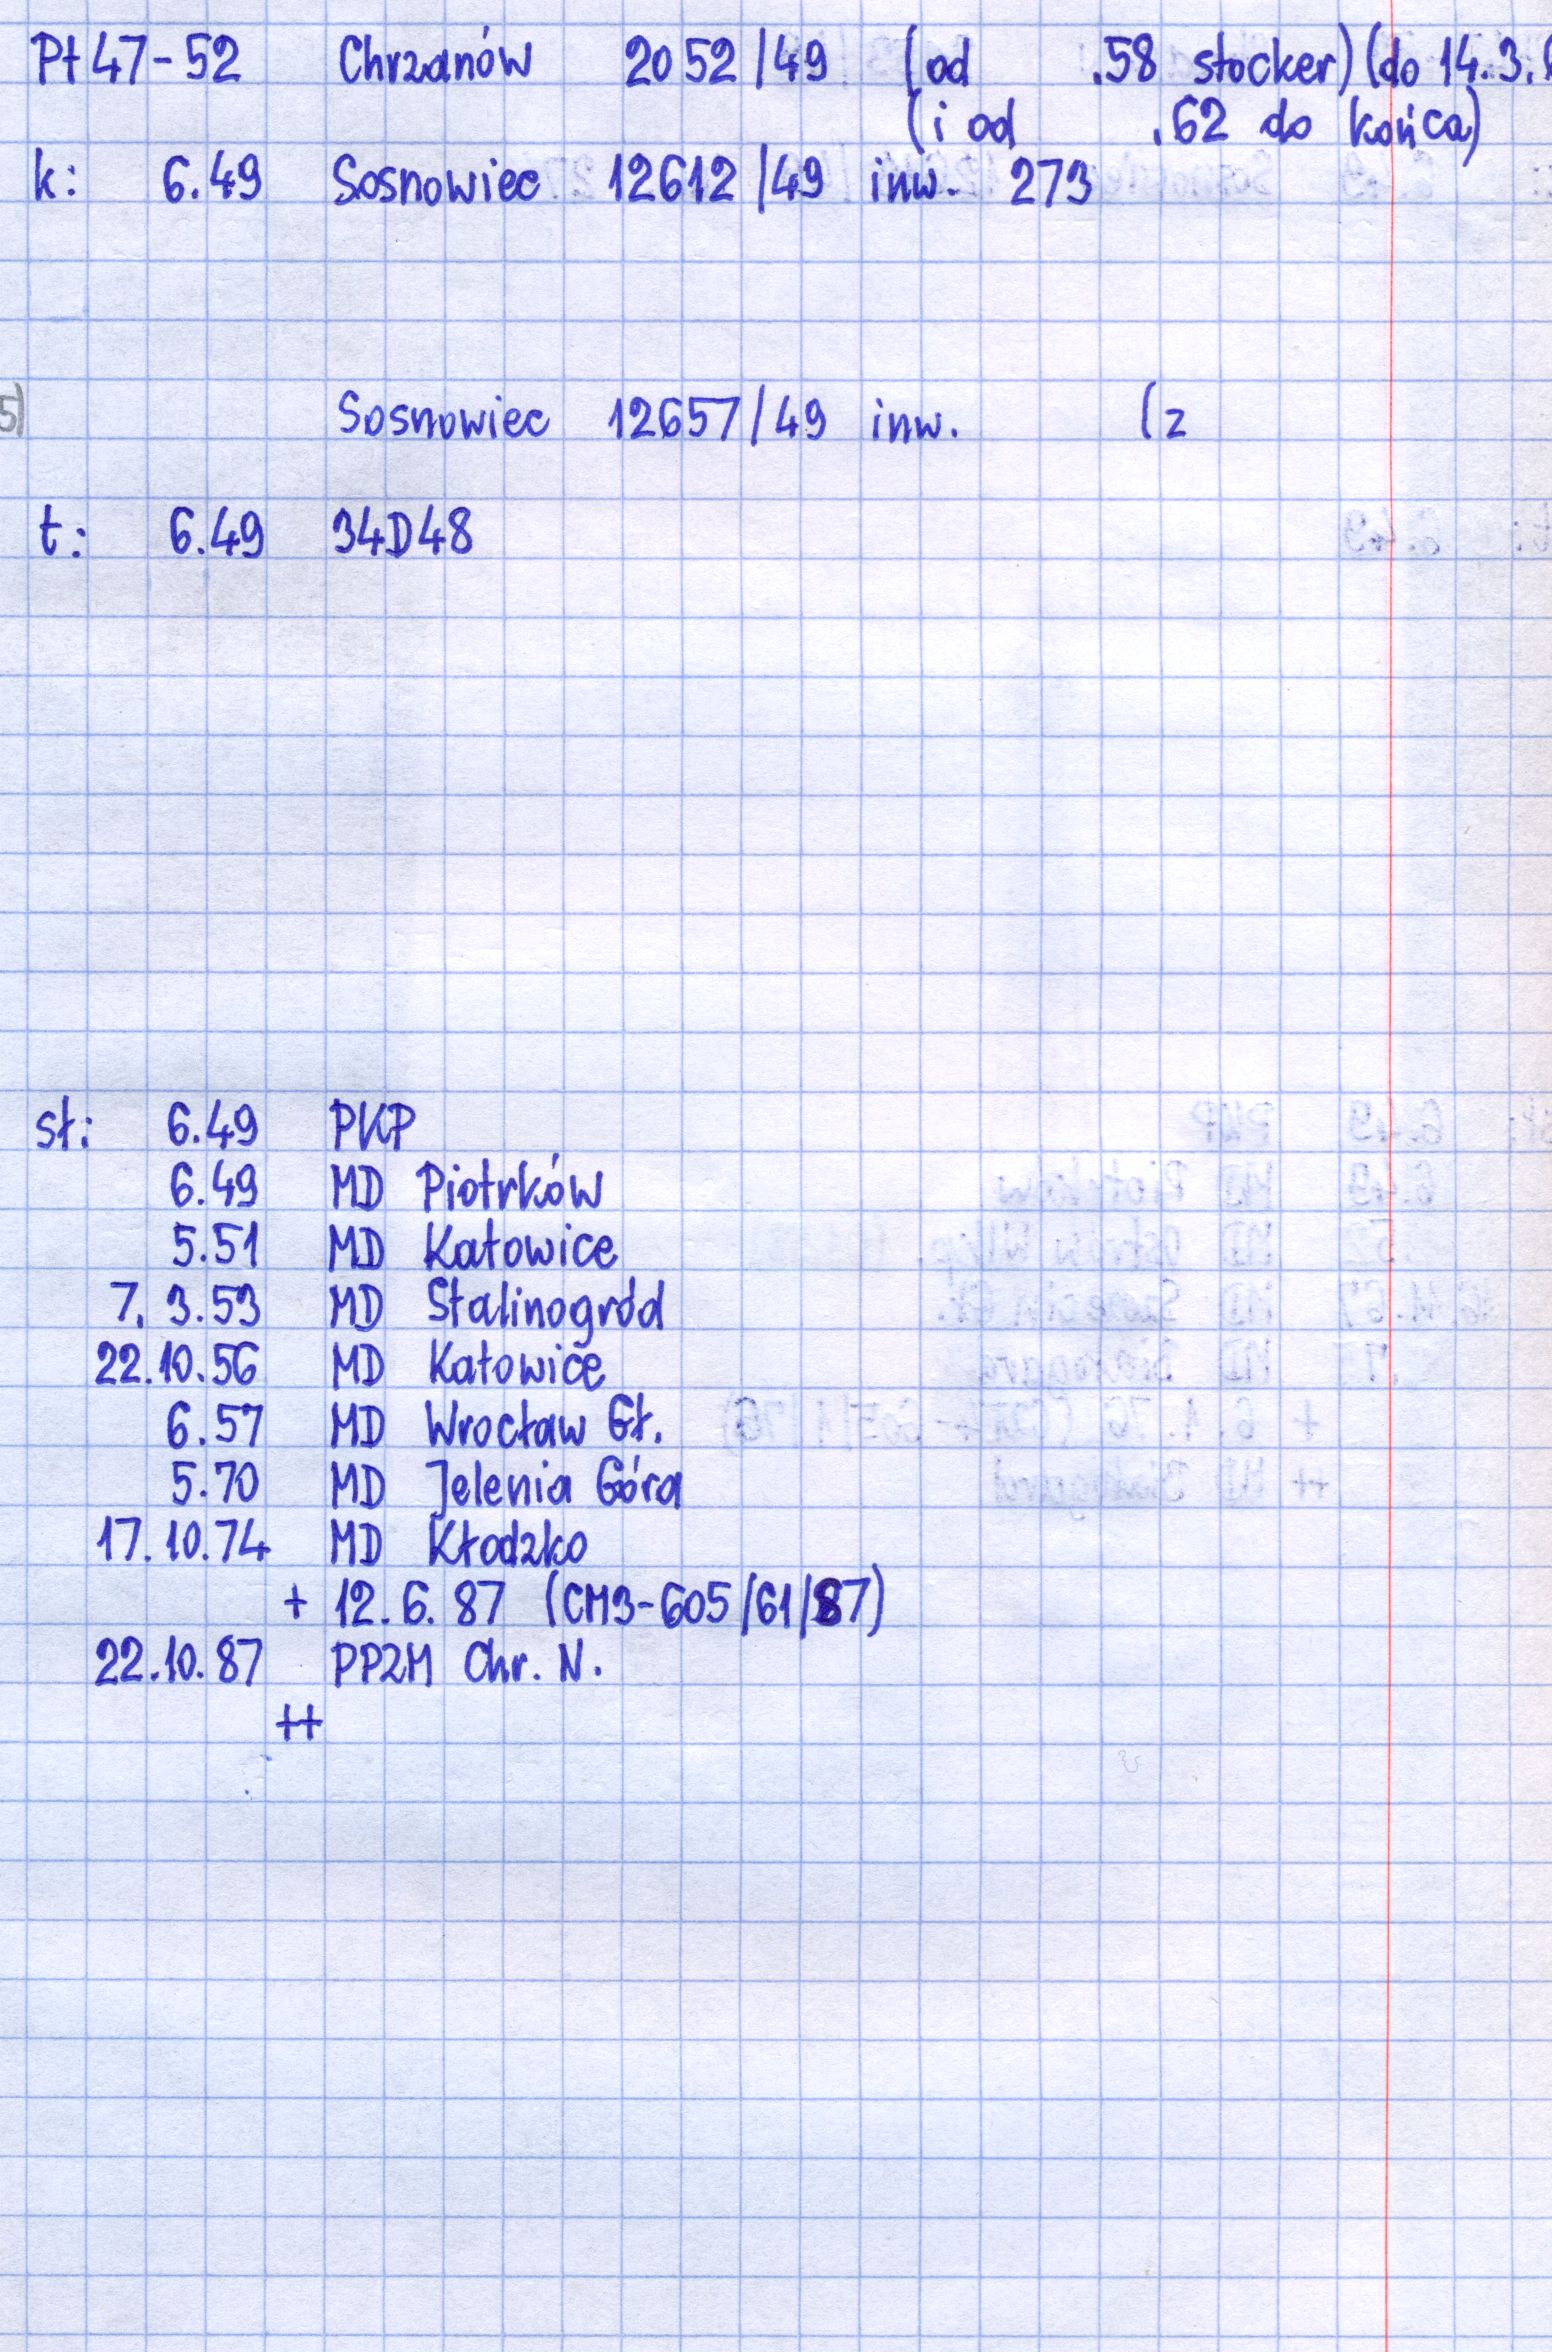 Pt47-52 Chrzanów 2052/49 (od .58 stocker) (do 14.3.
(i od .62 do końca)
k: 6.49 Sosnowiec 12612/49 inw. 273
5) Sosnowiec 12657/49 inw. (z
t: 6.49 34D48
st: 6.49 PKP
6.49 MD Piotrków
5.51 MD Katowice
7. 3.53 MD Stalinogród
22.10.56 MD Katowice
6.57 MD Wrocław Gł.
5.70 MD Jelenia Góra
17.10.74 MD Kłodzko
+ 12.6.87 (CM3-605/61/87)
22.10.87 PPZM Chr. N.
++